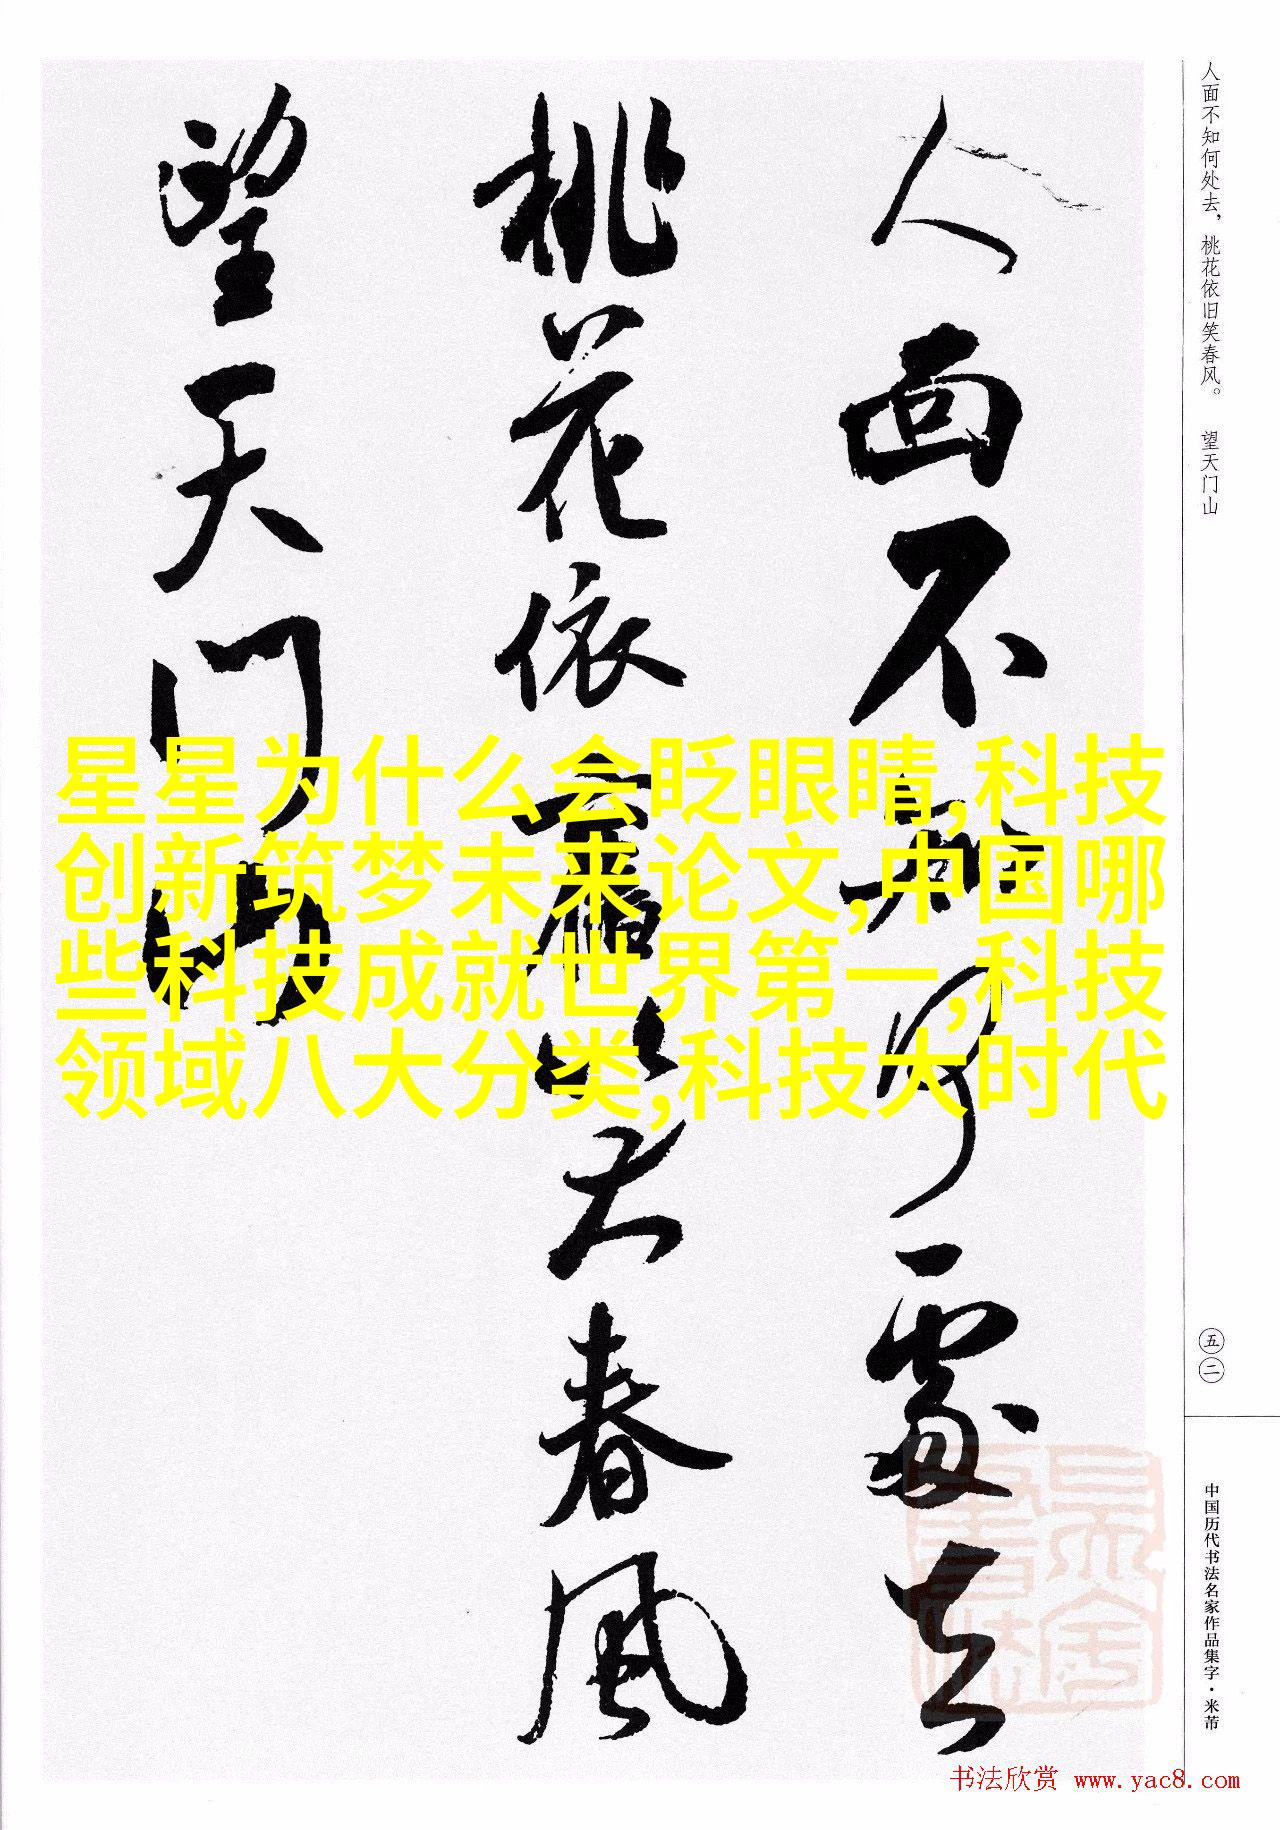 人面不知何處去
桃花依舊笑春風
望天门山
人面不知何处去，桃花依旧笑春风。 望天门山
星星为什么会眨眼睛,科技
创新筑梦未来论文,中国哪
些科技成就世界第一,科技
领域八大分类,科技大时代
五二
中国历代书法名家作品集字·米芾
书法欣赏 www.yac8.com